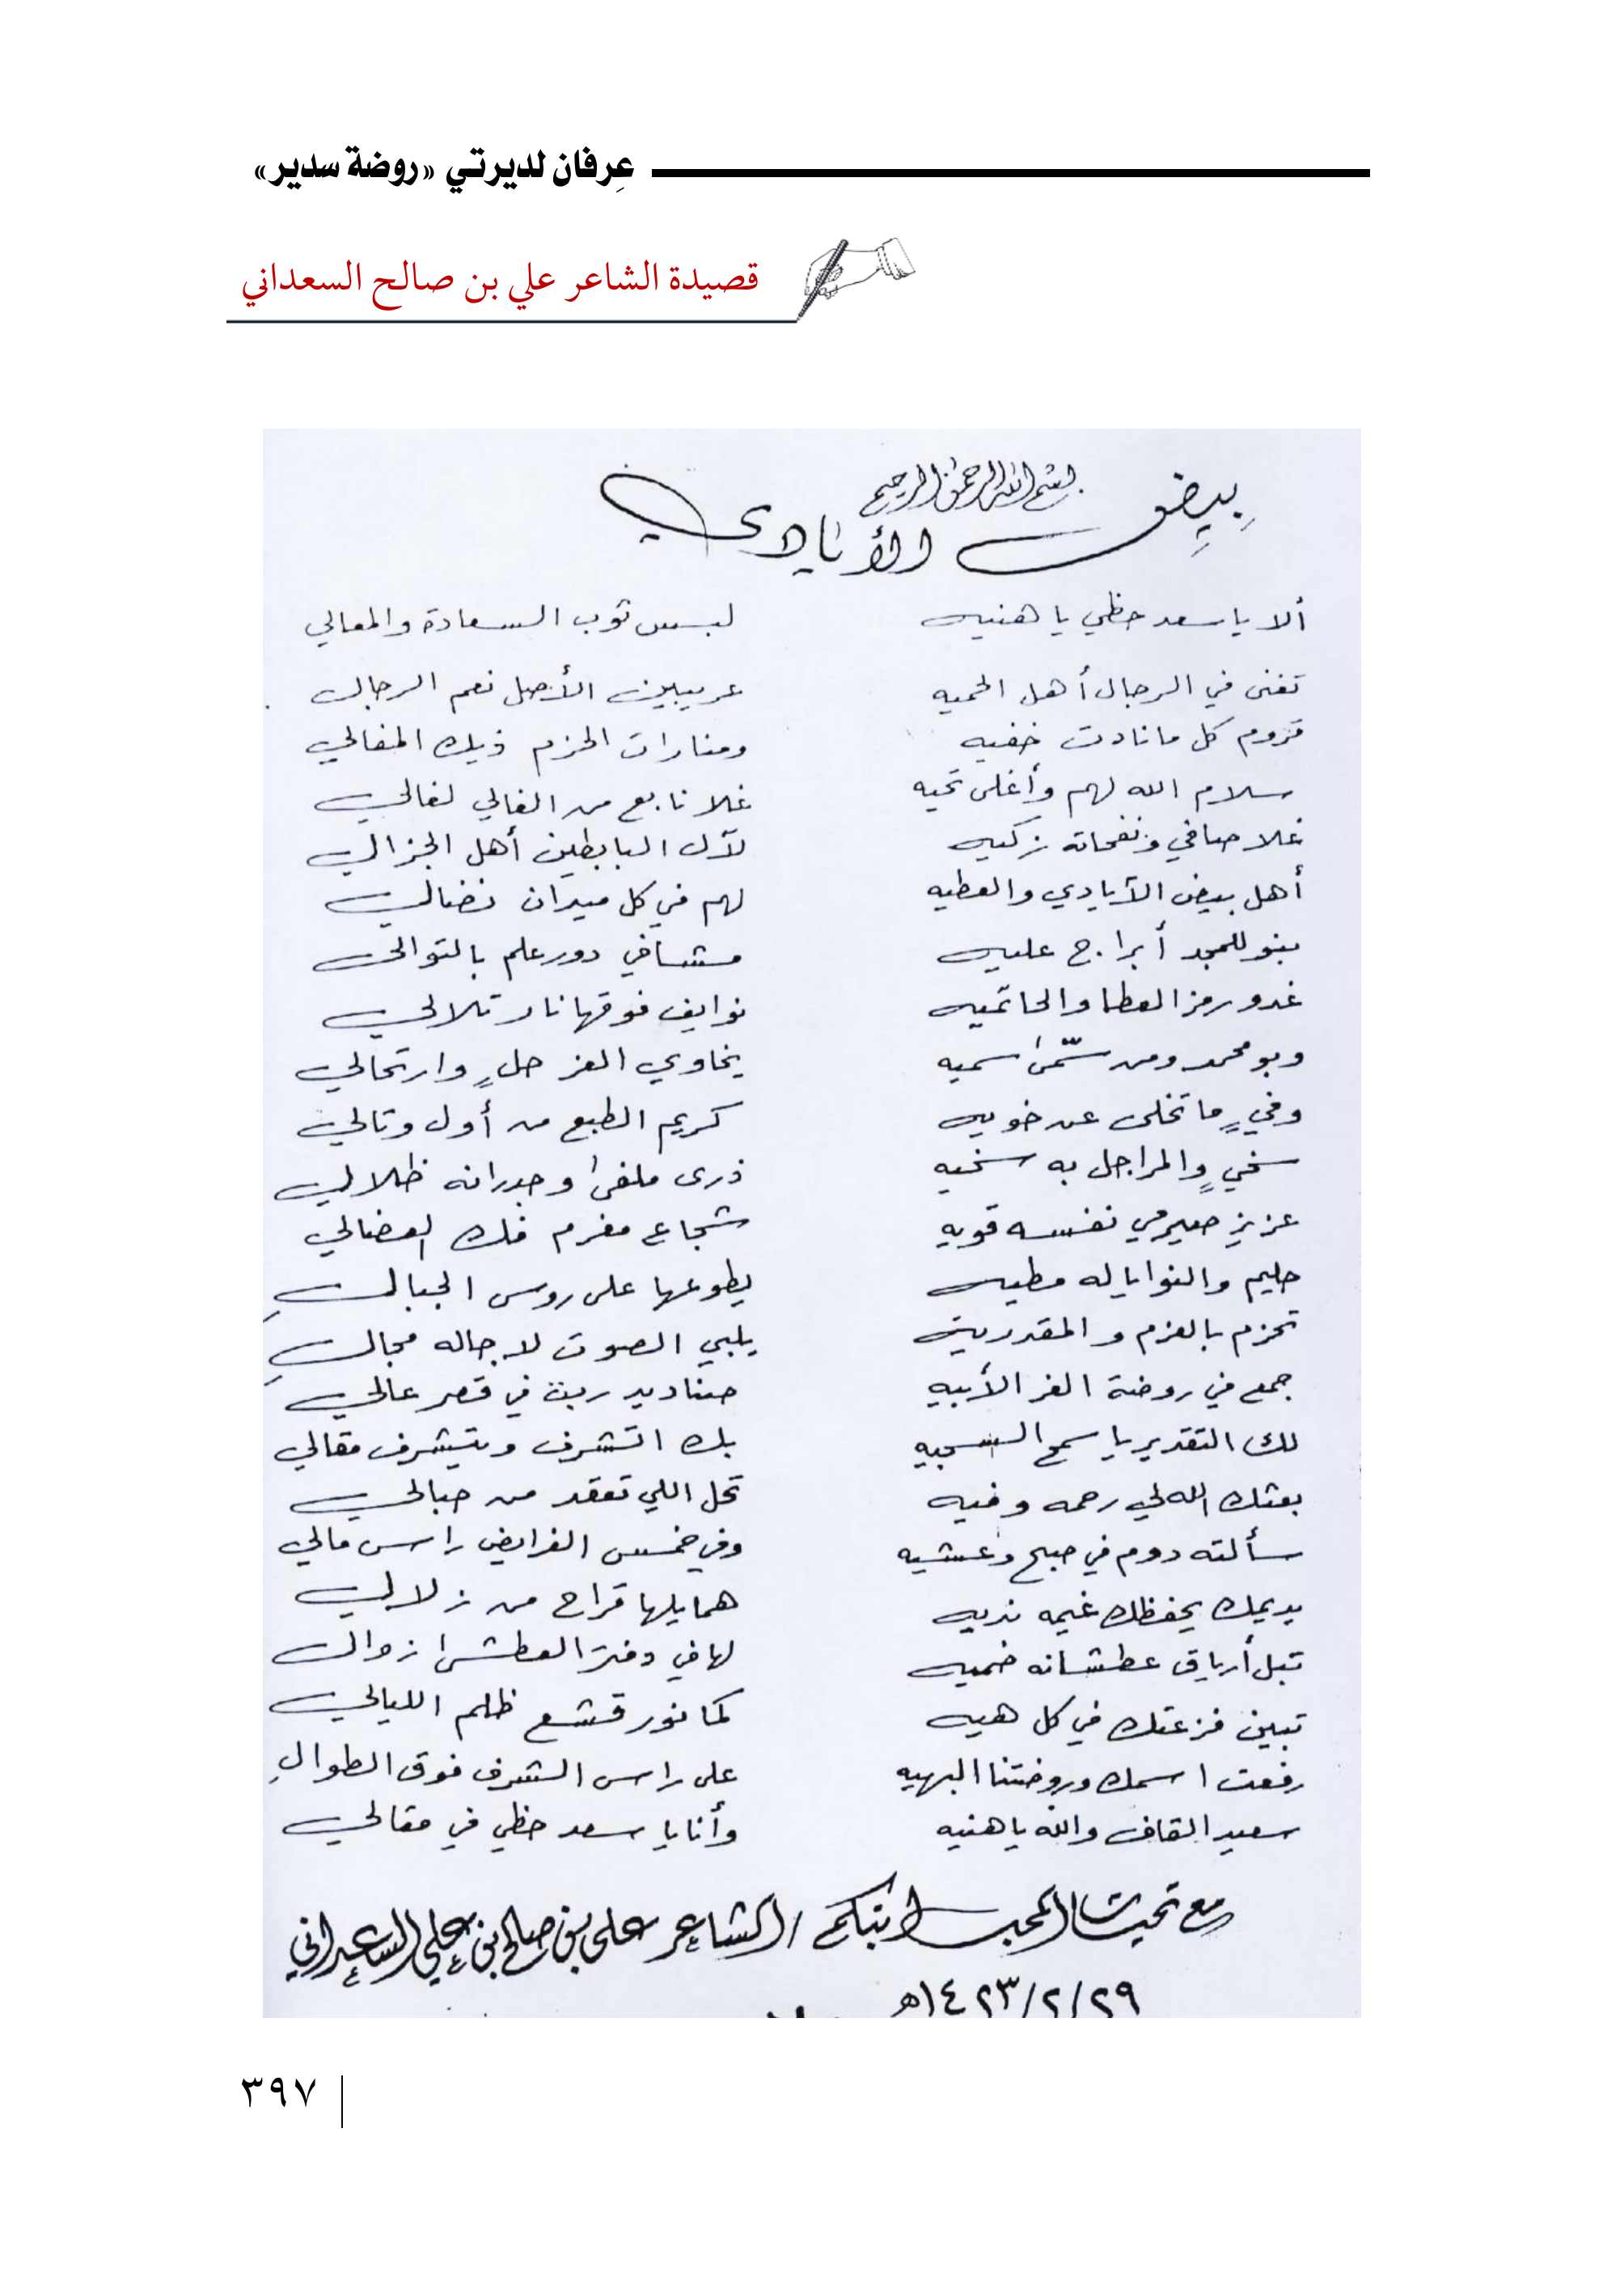 عِرفان لديرتي «روضة سدير»
قصيدة الشاعر علي بن صالح السعداني
بسم الله الرحمن الرحيم
بيض الأيادي
ألا يا سعد حظي يا هنيه لبس ثوب السعادة والمعالي
تغنى في الرجال أهل الحميه عريبين الأصل نعم الرجال
قروم كل ما نادت خفيه ومنارات الحزم ذيك المفالي
سلام الله لهم وأغلى تحيه غلا نابع من الغالي لغالي
غلا صافي ونفحاته زكيه لآل البابطين أهل الجزال
أهل بيض الأيادي والعطيه لهم في كل ميدان نضالي
بنو للمجد أبراج عليه مشافي دور علم بالتوالي
غدو رمز العطا والحاتميه نوايف فوقها نار تلالي
وبو محمد ومن سمّى سميه يخاوي العز حلٍ وارتحالي
وفيٍ ما تخلى عن خويه كريم الطبع من أول وتالي
سخيٍ والمراجل به سخيه ذرى ملفى وجدرانه ظلالي
عزيز صيرمي نفسه قويه شجاع مغرم فك العضالي
حليم والنوايا له مطيه يطوعها على روس الجبالِ
تحزم بالعزم والمقدريه يلبي الصوت لا جاله مجالِ
جمع في روضة العز الأبيه صناديد ربت في قصر عالي
لك التقدير يا سمح السجيه بك اتشرف ويتشرف مقالي
بعثك الله لي رحمه وفيه تحل اللي تعقد من حبالي
سألته دوم في صبح وعشيه وفي خمس الفرايض راس مالي
يديمك يحفظك غيمه نديه همايلها قراح من زلالي
تبل أرياق عطشانه ضميه لها في دفتر العطشى زوال
تبين فزعتك في كل هيه كما نور قشع ظلم الليالي
رفعت اسمك وروضتنا البهيه على راس الشرف فوق الطوالِ
سعيد القاف والله يا هنيه وأنا يا سعد حظي في مقالي
مع تحيات المحب ابنكم / الشاعر علي بن صالح بن علي السعداني
١٤٢٣/٢/٢٩هـ
٣٩٧